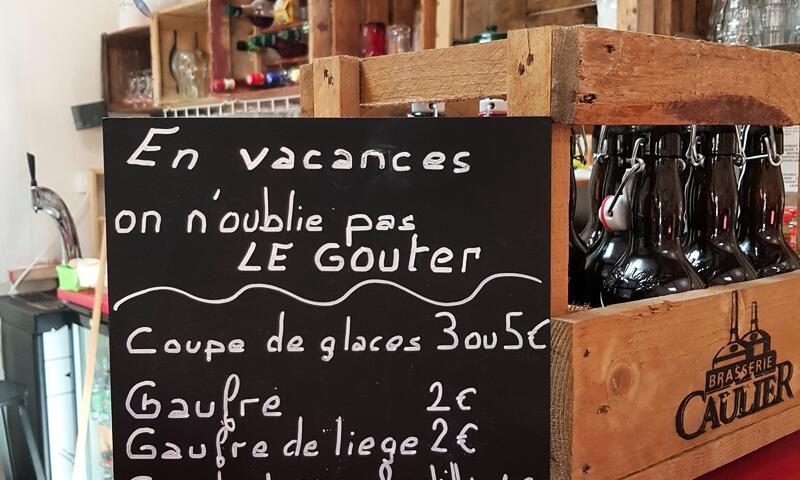 En vacances
on n'oublie pas
LE Gouter
Coupe de glaces 3 ou 5€
Gaufre 2€
Gaufre de liege 2€
BRASSERIE
CAULIER